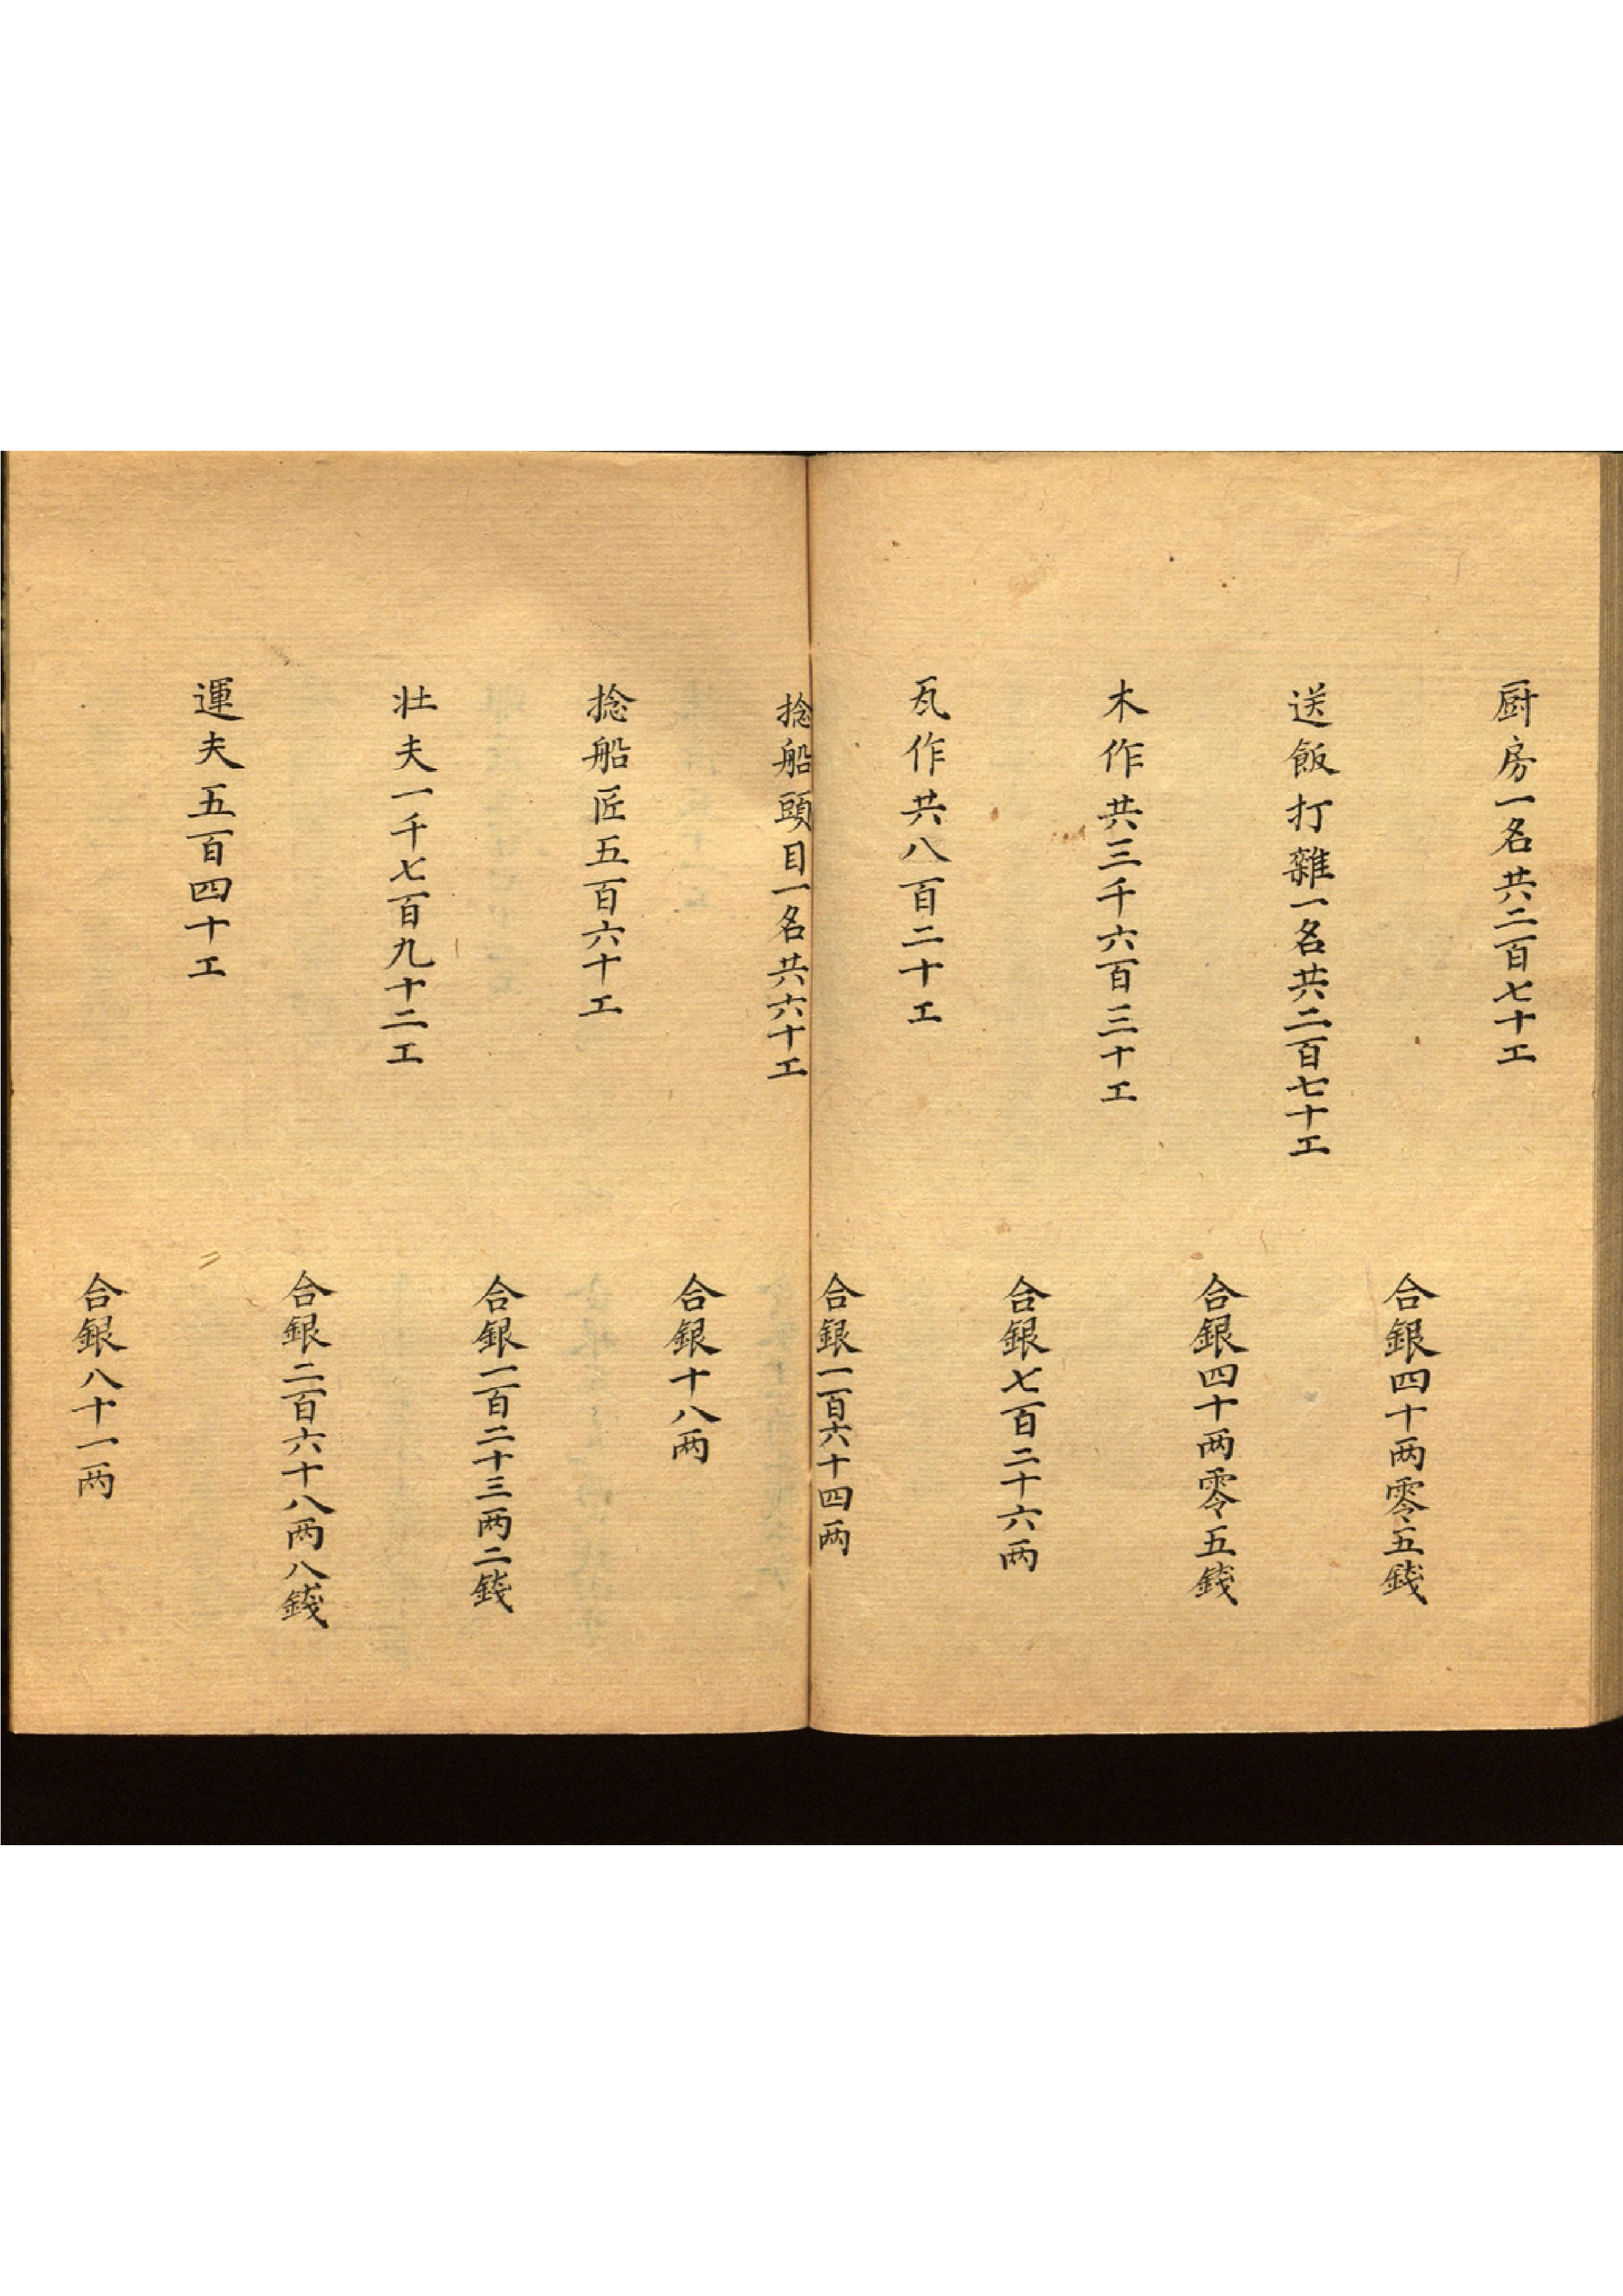 厨房一名共二百七十工
合銀四十两零五錢
送飯打雜一名共二百七十工
合銀四十两零五錢
木作共三千六百三十工
合銀七百二十六两
瓦作共八百二十工
合銀一百六十四两
捻船頭目一名共六十工
合銀十八两
捻船匠五百六十工
合銀一百二十三两二錢
壮夫一千七百九十二工
合銀二百六十八两八錢
運夫五百四十工
合銀八十一两